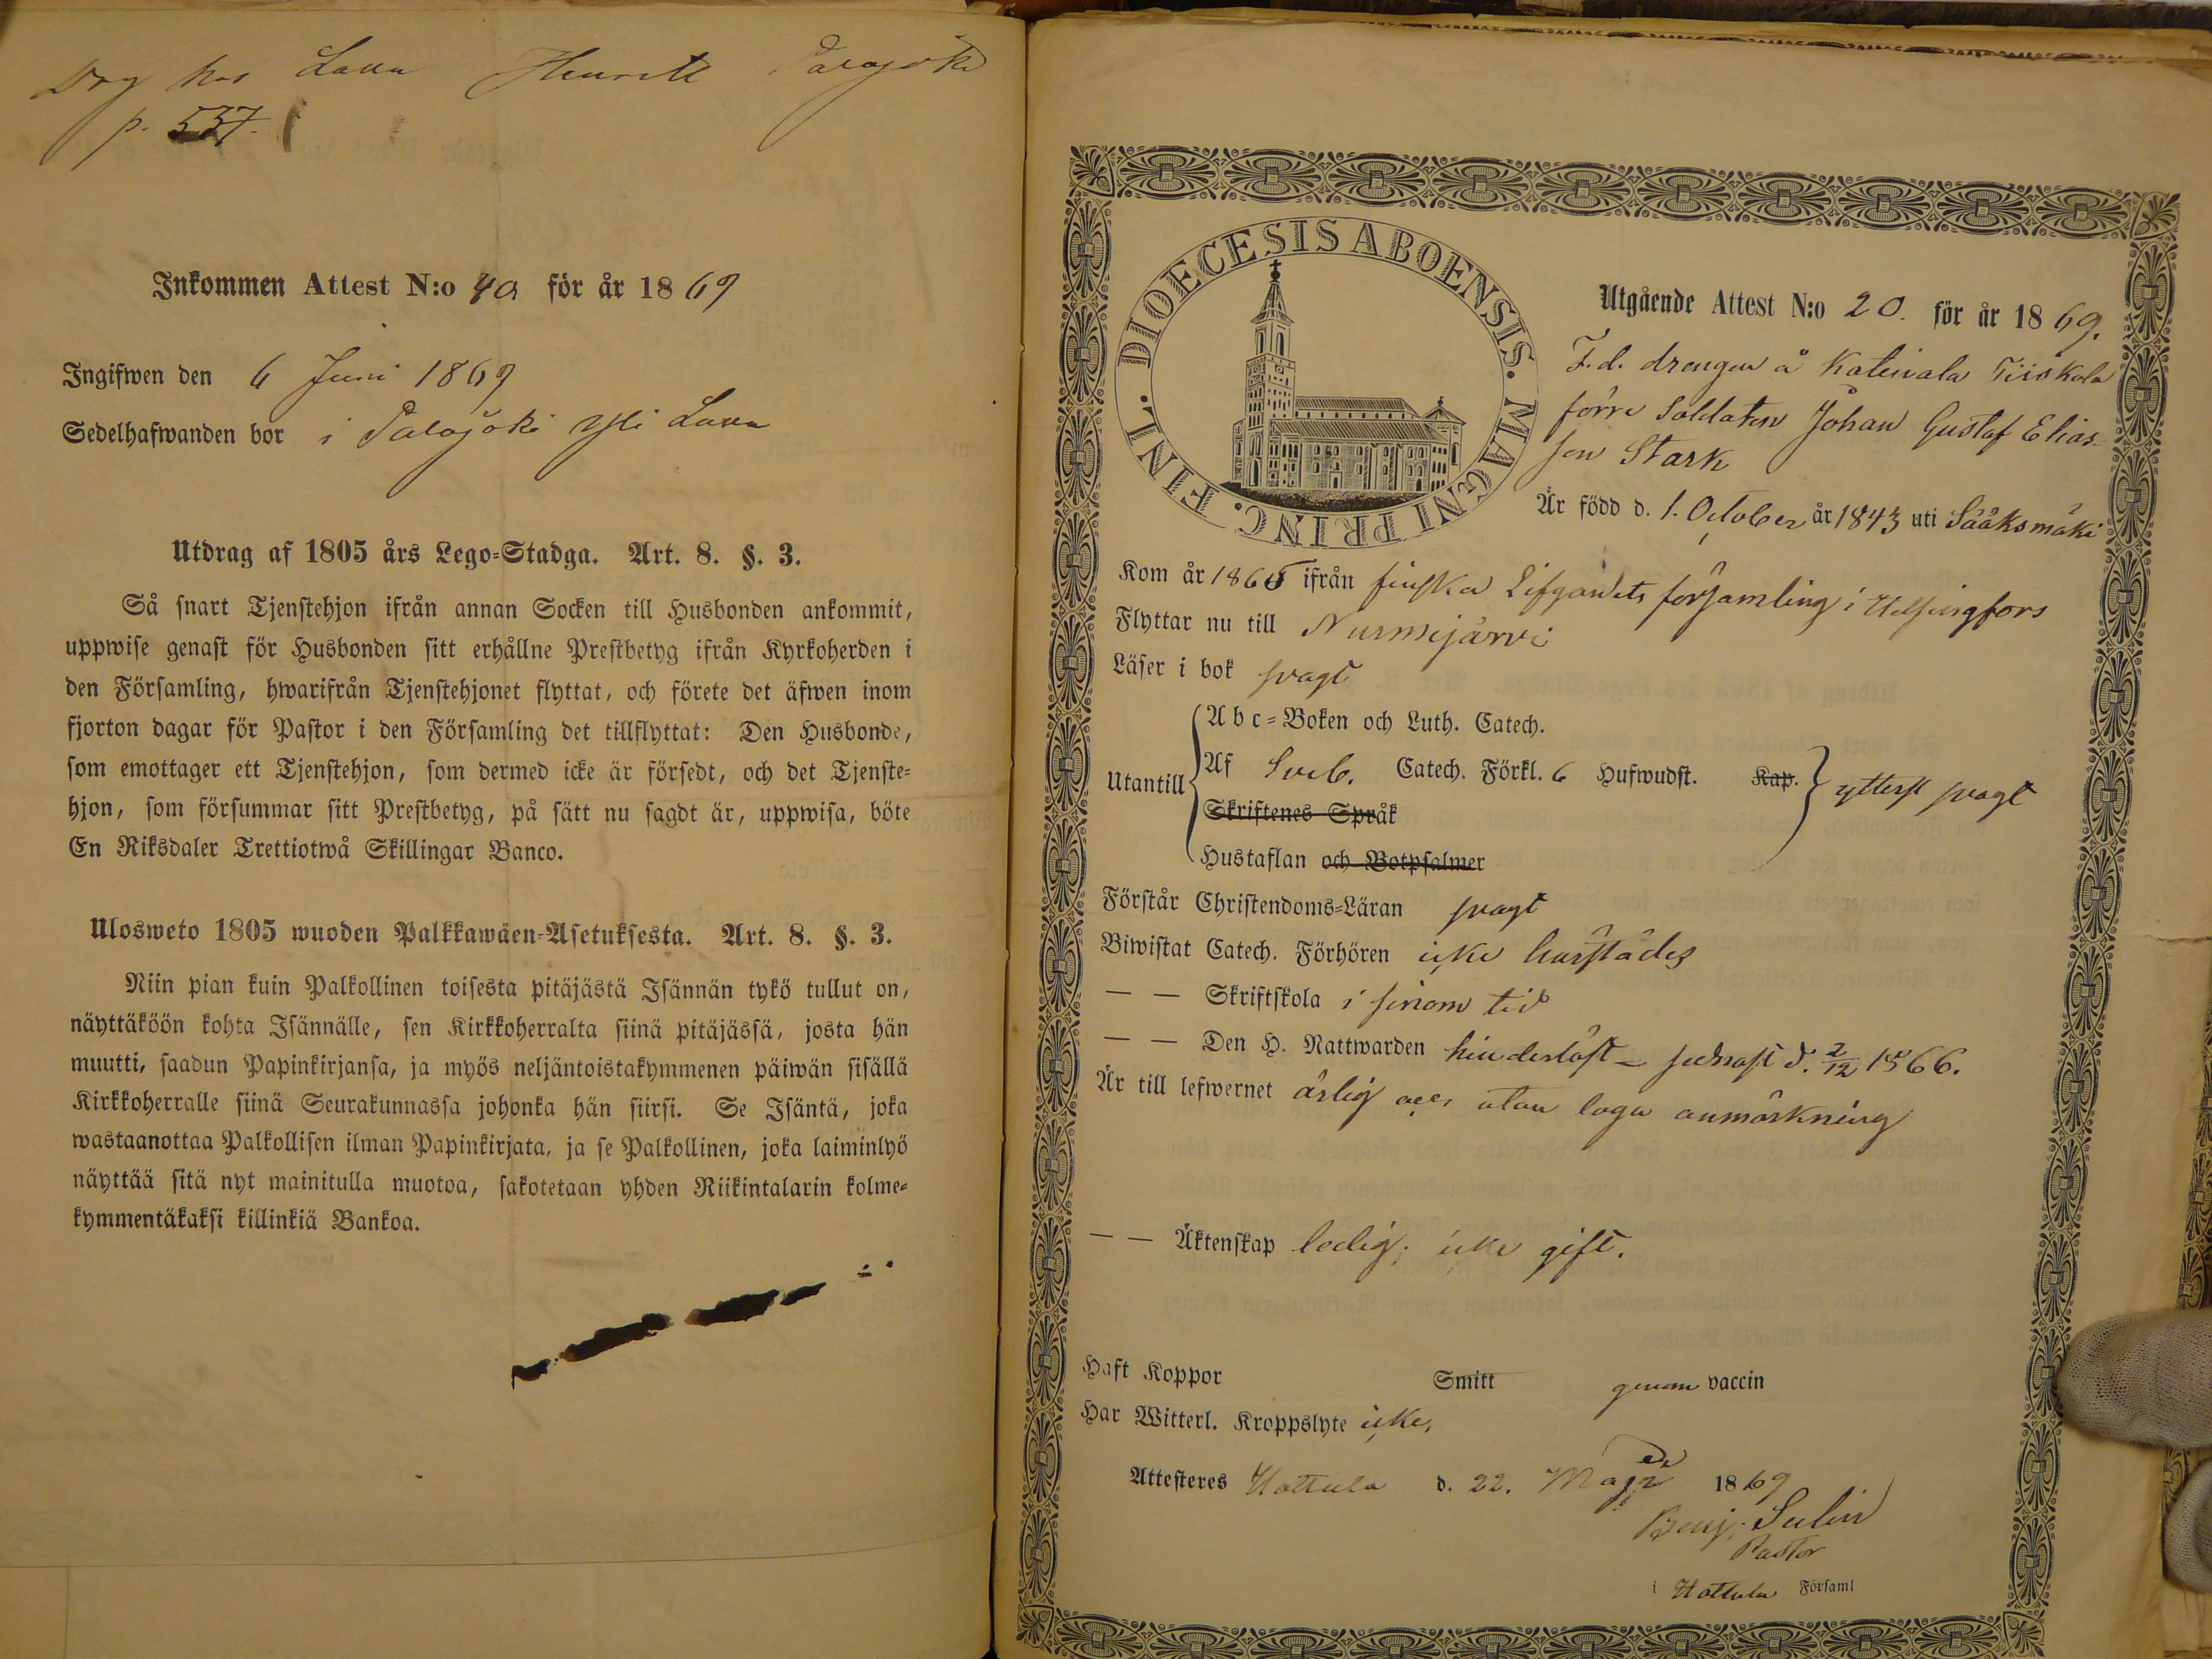 Drg hos Lauu Henrik Palojoki
p. 537.
Inkommen Attest N:o 40 för år 1869
Ingifwen den 6 Juni 1869
Sedelhafwanden bor i Palojoki Yli Laua
Utdrag af 1805 års Lego-Stadga. Art. 8. §. 3.
Så snart Tjenstehjon ifrån annan Socken till Husbonden ankommit,
uppwise genast för Husbonden sitt erhållne Prestbetyg ifrån Kyrkoherden i
den Församling, hwarifrån Tjenstehjonet flyttat, och förete det äfwen inom
fjorton dagar för Pastor i den Församling det tillflyttat: Den Husbonde,
som emottager ett Tjenstehjon, som dermed icke är försedt, och det Tjenste-
hjon, som försummar sitt Prestbetyg, på sätt nu sagdt är, uppwisa, böte
En Riksdaler Trettiotwå Skillingar Banco.
Ulosweto 1805 wuoden Palkkawäen-Asetuksesta. Art. 8. §. 3.
Niin pian kuin Palkollinen toisesta pitäjästä Isännän tykö tullut on,
näyttäköön kohta Isännälle, sen Kirkkoherralta siinä pitäjässä, josta hän
muutti, saadun Papinkirjansa, ja myös neljäntoistakymmenen päiwän sisällä
Kirkkoherralle siinä Seurakunnassa johonka hän siirsi. Se Isäntä, joka
wastaanottaa Palkollisen ilman Papinkirjata, ja se Palkollinen, joka laiminlyö
näyttää sitä nyt mainitulla muotoa, sakotetaan yhden Riikintalarin kolme-
kymmentäkaksi killinkiä Bankoa.
DIOECESIS ABOENSIS. MAGNI PRINC. FINL.
Utgående Attest N:o 20. för år 1869.
F.d. drengen å Katinala Tiiskola
förre Soldaten Johan Gustaf Elias
son Stark
Är född d. 1. October år 1843 uti Sääksmäki
Kom år 1866 ifrån finska Lifgardets församling i Helsingfors
Flyttar nu till Nurmijärvi
Läser i bok svagt
Utantill
Abc-Boken och Luth. Catech.
Af Sveb. Catech. Förkl. 6 Hufwudst. Kap. ytterst svagt
Skriftenes Språk
Hustaflan och Botpsalmer
Förstår Christendoms-Läran svagt
Biwistat Catech. Förhören icke härstädes
— — Skriftskola i sinom tid
— — Den H. Nattwarden hinderlöst – sednast d. 2/12 1866.
Är till lefwernet ärlig och utan laga anmärkning
— — Äktenskap ledig; icke gift.
Haft Koppor Smitt genom vaccin
Har Witterl. Kroppslyte icke,
Attesteres Hattula d. 22. Maji 1869
Benj. Sulin
Pastor
i Hattula Församl